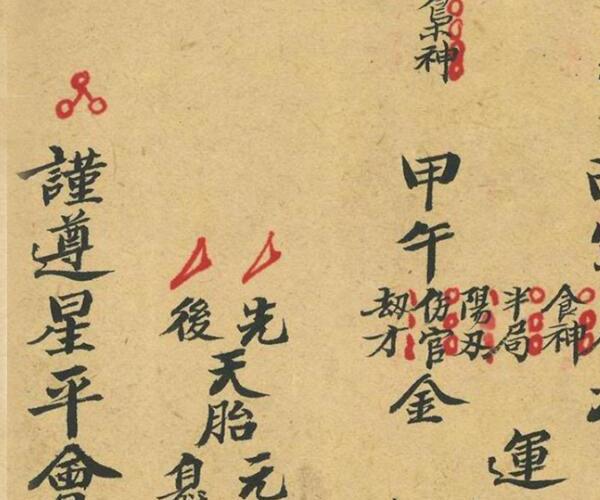 運
食神
半局
陽刃
梟神
甲午
伤官
劫才
金
先
後
天胎
元
謹遵星平會